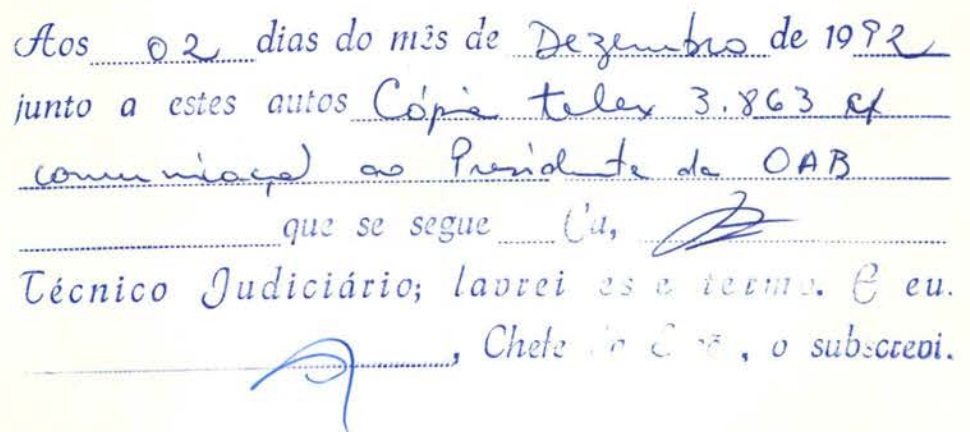 Aos 02 dias do mês de Dezembro de 1992
junto a estes autos Cópia telex 3.863 c/
comunicação ao Presidente da OAB
que se segue
Técnico Judiciário; lavrei este termo. E eu.
, Chefe , o subscrevi.